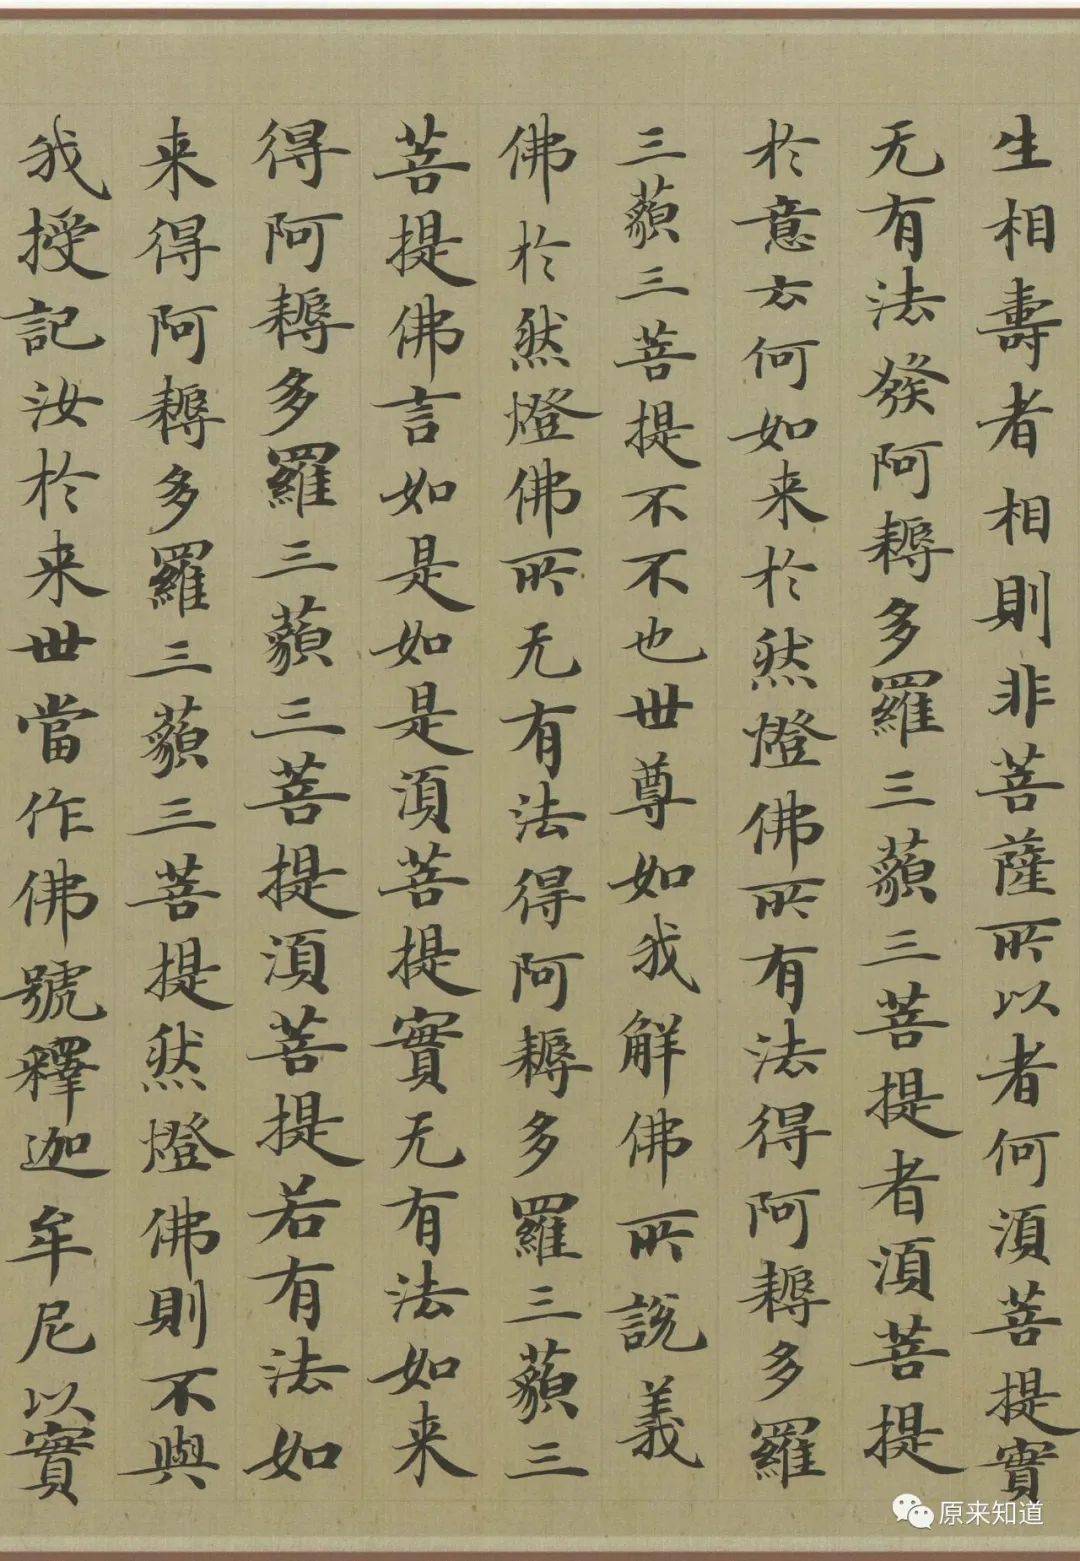 生相壽者相則非菩薩所以者何須菩提實
无有法發阿耨多羅三藐三菩提者須菩提
於意云何如来於然燈佛所有法得阿耨多羅
三藐三菩提不不也世尊如我解佛所說義
佛於然燈佛所无有法得阿耨多羅三藐三
菩提佛言如是如是須菩提實无有法如来
得阿耨多羅三藐三菩提須菩提若有法如
来得阿耨多羅三藐三菩提然燈佛則不與
我授記汝於来世當作佛號釋迦牟尼以實
原来知道